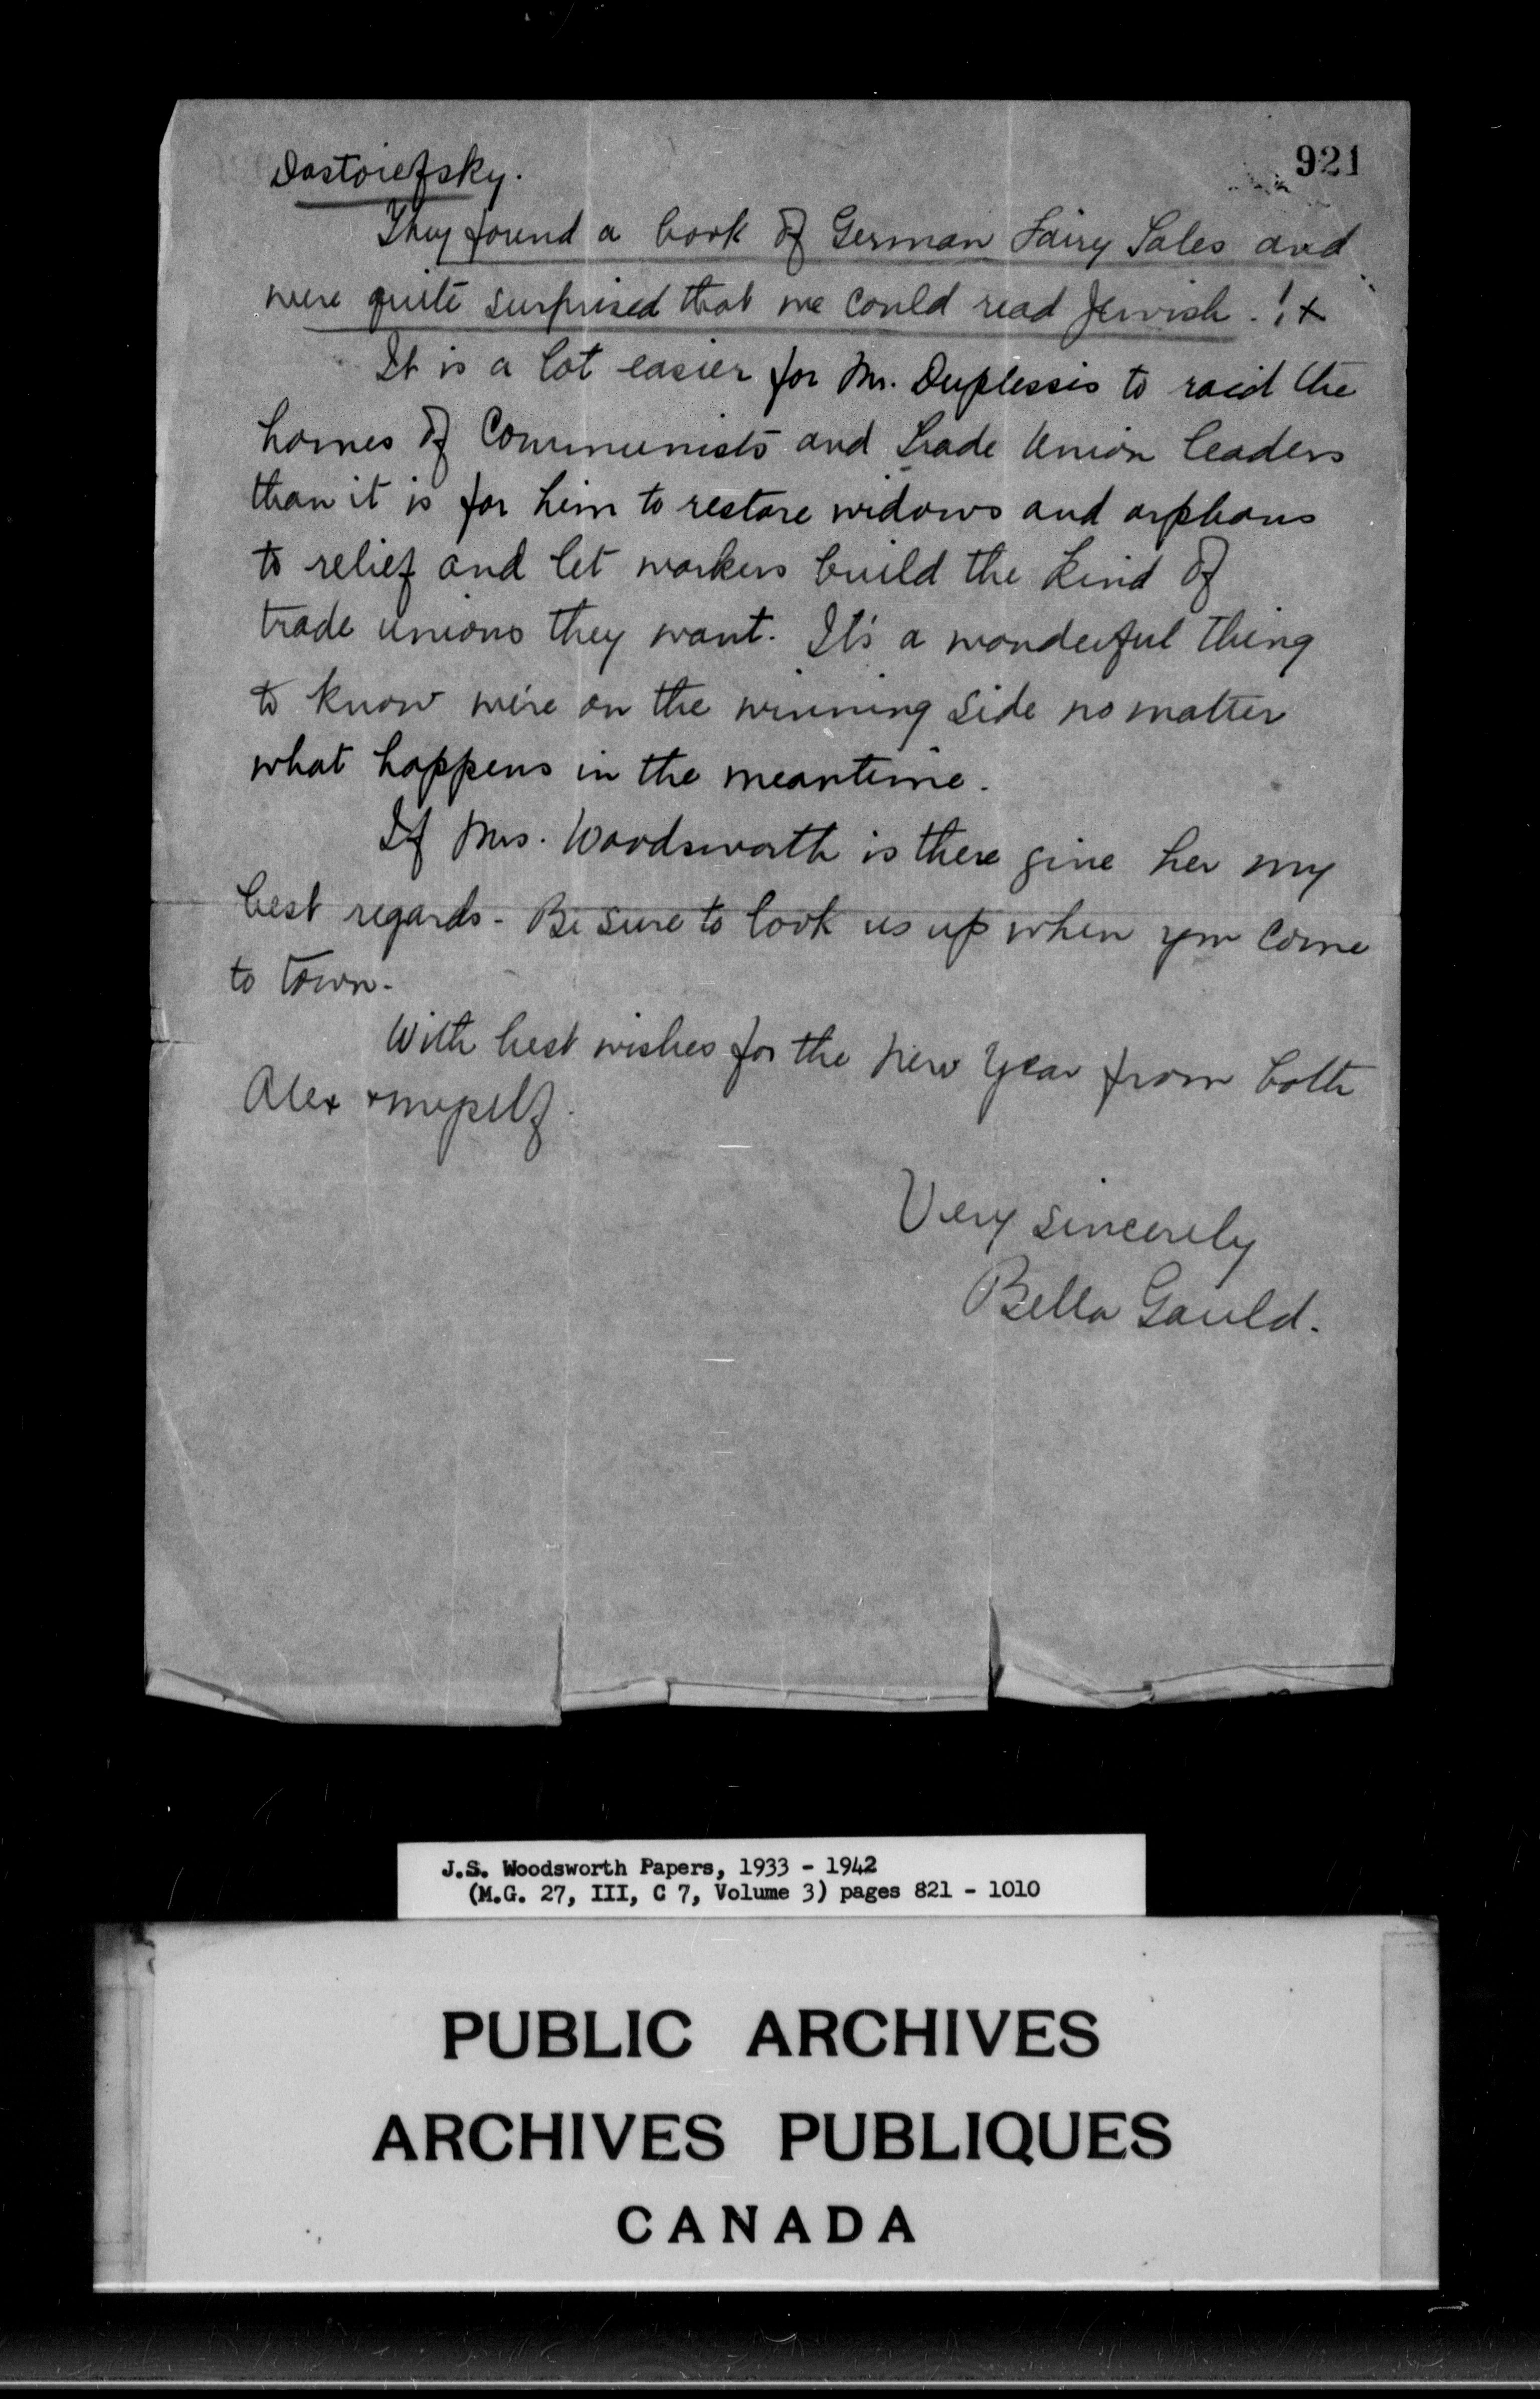 921
Dostoiefsky.
They found a book of German Fairy Tales and
were quite surprised that we could read Jewish. ! x
It is a lot easier for Mr. Duplessis to raid the
homes of Communists and Trade Union leaders
than it is for him to restore widows and orphans
to relief and let workers build the kind of
trade unions they want. It's a wonderful thing
to know we're on the winning side no matter
what happens in the meantime.
If Mrs. Woodsworth is there give her my
best regards - Be sure to look us up when you come
to town.
With best wishes for the New Year from both
Alex & myself.
Very sincerely
Bella Gauld.
J.S. Woodsworth Papers, 1933 - 1942
(M.G. 27, III, C 7, Volume 3) pages 821 - 1010
PUBLIC ARCHIVES
ARCHIVES PUBLIQUES
CANADA